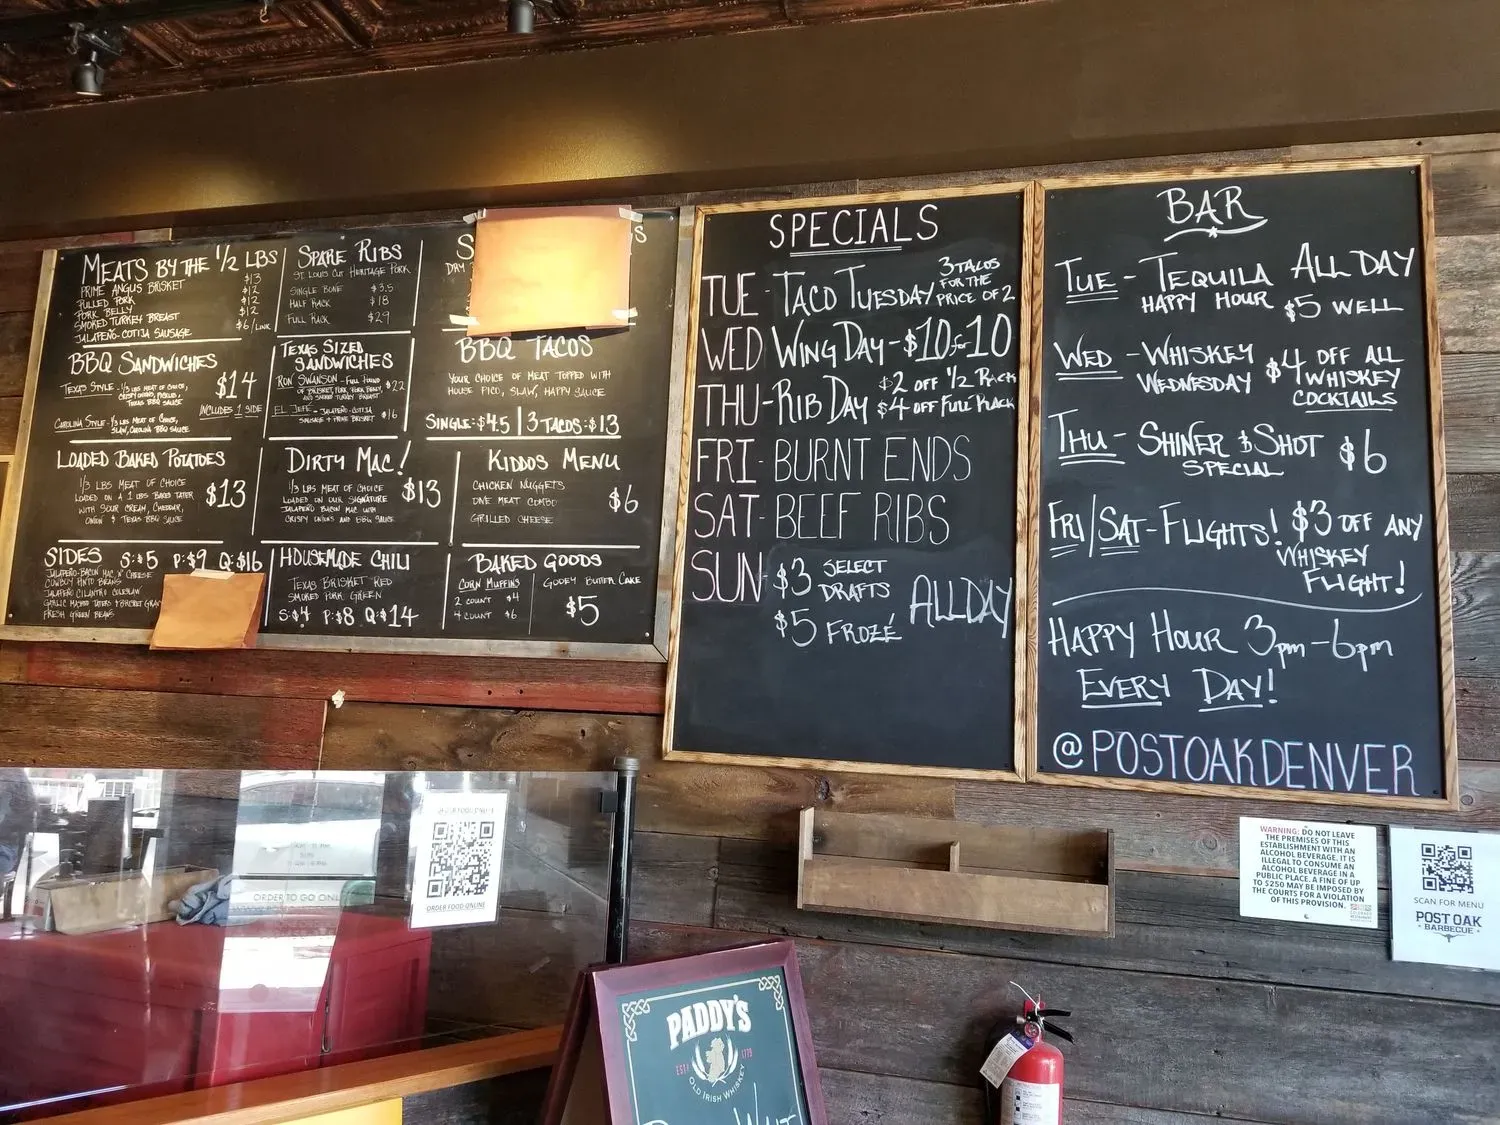 MEATS BY THE 1/2 LBS
PRIME ANGUS BRISKET $13
PULLED PORK $12
PORK BELLY $12
SMOKED TURKEY BREAST $12
JALAPEÑO-COTIJA SAUSAGE $6/LINK
SPARE RIBS
ST. LOUIS CUT HERITAGE PORK
SINGLE BONE $3.5
HALF RACK $18
FULL RACK $29
S S
DRY
BBQ SANDWICHES
TEXAS STYLE - 1/3 LBS MEAT OF CHOICE,
CRISPY ONIONS, PICKLES,
TEXAS BBQ SAUCE
$14
INCLUDES 1 SIDE
CAROLINA STYLE - 1/3 LBS MEAT OF CHOICE,
SLAW, CAROLINA BBQ SAUCE
TEXAS SIZED
SANDWICHES
RON SWANSON - FULL POUND
OF BRISKET, PORK, PORK BELLY,
AND SMOKED TURKEY BREAST
$22
EL JEFE - JALAPEÑO-COTIJA
SAUSAGE + PRIME BRISKET
$16
BBQ TACOS
YOUR CHOICE OF MEAT TOPPED WITH
HOUSE PICO, SLAW, HAPPY SAUCE
SINGLE: $4.5 | 3 TACOS: $13
LOADED BAKED POTATOES
1/3 LBS MEAT OF CHOICE
LOADED ON A 1 LBS BAKED TATER
WITH SOUR CREAM, CHEDDAR,
ONION & TEXAS BBQ SAUCE
$13
DIRTY MAC!
1/3 LBS MEAT OF CHOICE
LOADED ON OUR SIGNATURE
JALAPEÑO BACON MAC WITH
CRISPY ONIONS AND BBQ SAUCE
$13
KIDDOS MENU
CHICKEN NUGGETS
ONE MEAT COMBO
GRILLED CHEESE
$6
SIDES S:$5 P:$9 Q:$16
JALAPEÑO-BACON MAC 'N' CHEESE
COWBOY PINTO BEANS
JALAPEÑO CILANTRO COLESLAW
GARLIC MASHED TATERS + BRISKET GRAV
FRESH GREEN BEANS
HOUSEMADE CHILI
TEXAS BRISKET RED
SMOKED PORK GREEN
S:$4 P:$8 Q:$14
BAKED GOODS
CORN MUFFINS
2 COUNT $4
4 COUNT $6
GOOEY BUTTER CAKE
$5
SPECIALS
TUE - TACO TUESDAY 3 TACOS FOR THE PRICE OF 2
WED WING DAY - $10 for 10
THU - RIB DAY $2 OFF 1/2 RACK
$4 OFF FULL RACK
FRI - BURNT ENDS
SAT - BEEF RIBS
SUN - $3 SELECT DRAFTS
$5 FROZÉ
ALL DAY
BAR
TUE - TEQUILA ALL DAY
HAPPY HOUR $5 WELL
WED - WHISKEY WEDNESDAY $4 OFF ALL
WHISKEY
COCKTAILS
THU - SHINER & SHOT $6
SPECIAL
FRI/SAT - FLIGHTS! $3 OFF ANY
WHISKEY
FLIGHT!
HAPPY HOUR 3pm-6pm
EVERY DAY!
@POSTOAKDENVER
ORDER FOOD ONLINE
ORDER TO GO ONL
WARNING: DO NOT LEAVE
THE PREMISES OF THIS
ESTABLISHMENT WITH AN
ALCOHOL BEVERAGE. IT IS
ILLEGAL TO CONSUME AN
ALCOHOL BEVERAGE IN A
PUBLIC PLACE. A FINE OF UP
TO $250 MAY BE IMPOSED BY
THE COURTS FOR A VIOLATION
OF THIS PROVISION.
SCAN FOR MENU
POST OAK
BARBECUE
PADDY'S
ESTD 1779
OLD IRISH WHISKEY